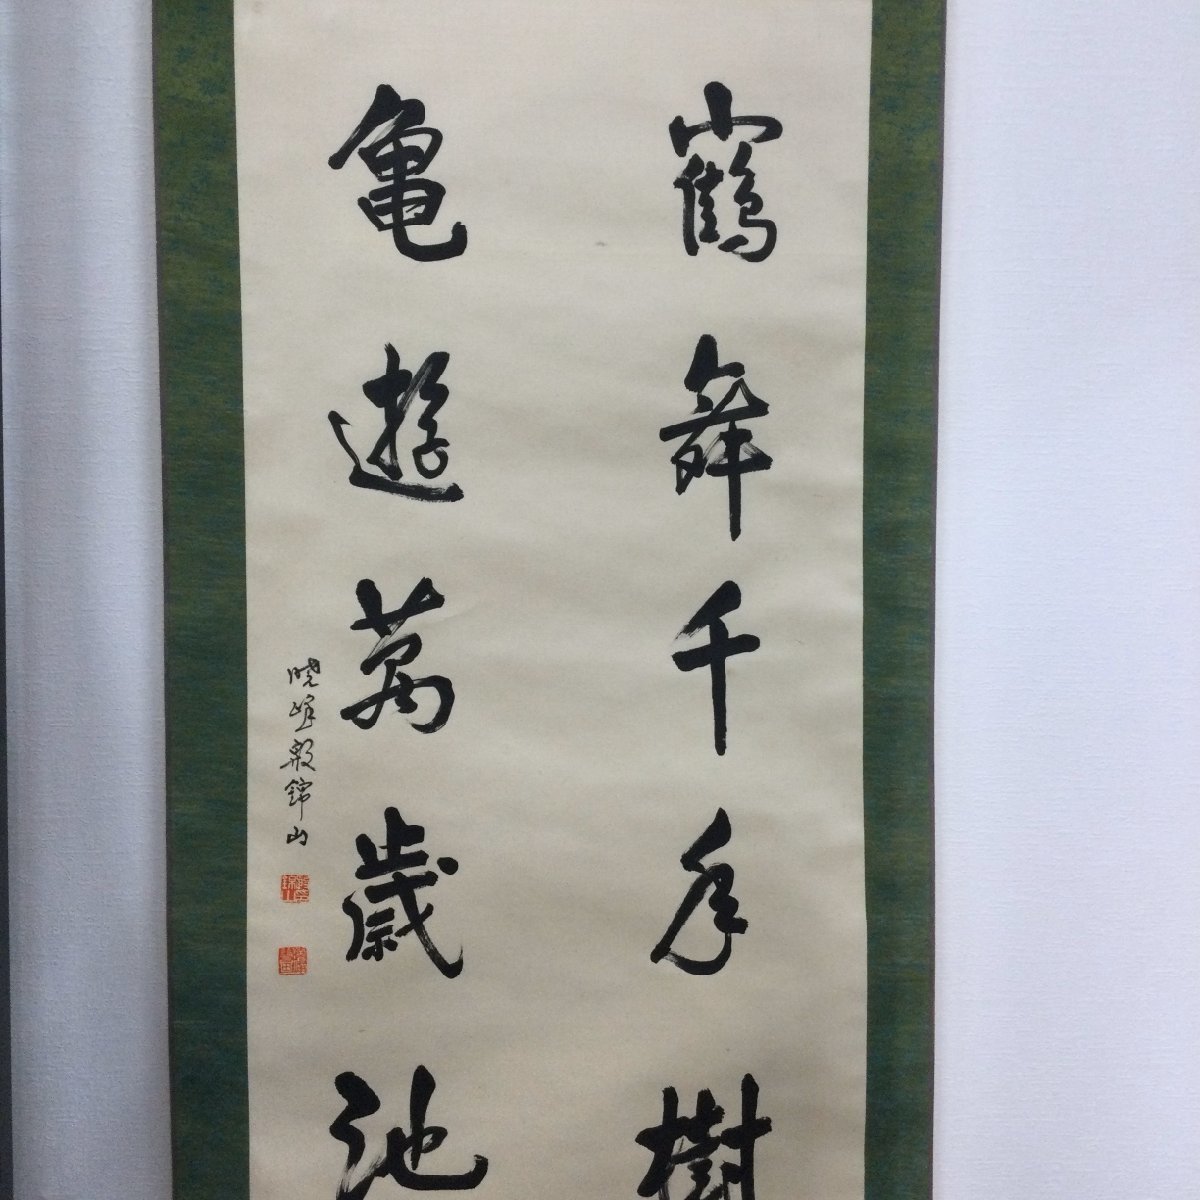 鶴舞千年樹
亀遊萬歳池
暁峰殿錦山